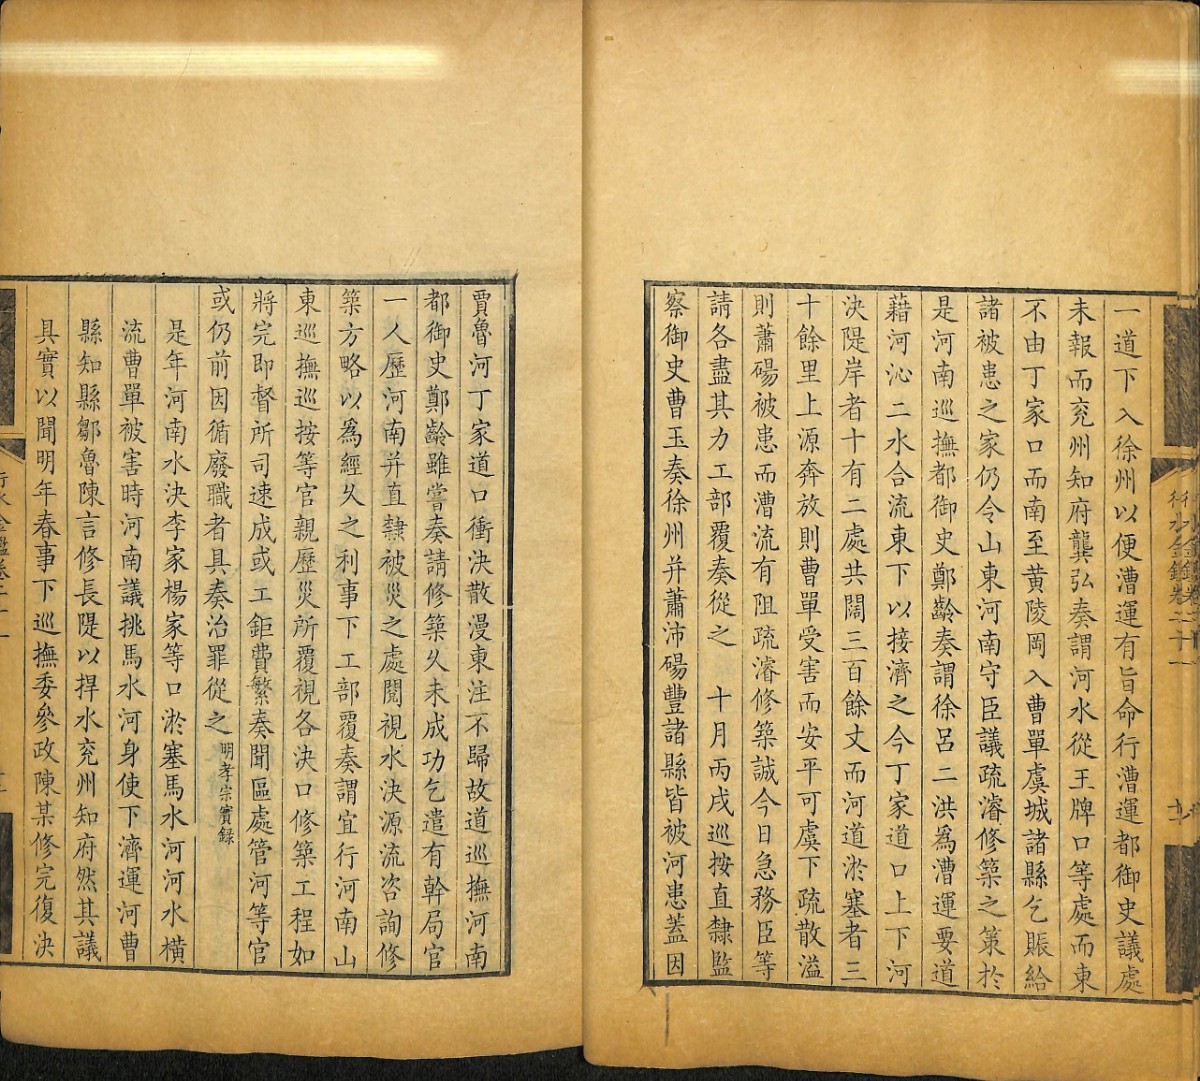 一道下入徐州以便漕運有旨命行漕運都御史議處
未報而兖州知府龔弘奏謂河水從王牌口等處而東
不由丁家口而南至黄陵岡入曹單虞城諸縣乞賑給
諸被患之家仍令山東河南守臣議疏濬修築之策於
是河南巡撫都御史鄭齡奏謂徐呂二洪為漕運要道
藉河沁二水合流東下以接濟之今丁家道口上下河
決隄岸者十有二處共闊三百餘丈而河道淤塞者三
十餘里上源奔放則曹單受害而安平可虞下疏散溢
則蕭碭被患而漕流有阻疏濬修築誠今日急務臣等
請各盡其力工部覆奏從之　十月丙戌巡按直隸監
察御史曹玉奏徐州并蕭沛碭豐諸縣皆被河患蓋因
賈魯河丁家道口衝決散漫東注不歸故道巡撫河南
都御史鄭齡雖嘗奏請修築乆未成功乞遣有幹局官
一人歷河南并直隸被災之處閱視水決源流咨詢修
築方略以爲經乆之利事下工部覆奏謂宜行河南山
東巡撫巡按等官親歷災所覆視各決口修築工程如
將完即督所司速成或工鉅費繁奏聞區處管河等官
或仍前因循廢職者具奏治罪從之明孝宗實録
是年河南水決李家楊家等口淤塞馬水河河水橫
流曹單被害時河南議挑馬水河身使下濟運河曹
縣知縣鄒魯陳言修長隄以捍水兖州知府然其議
具實以聞明年春事下巡撫委參政陳某修完復決